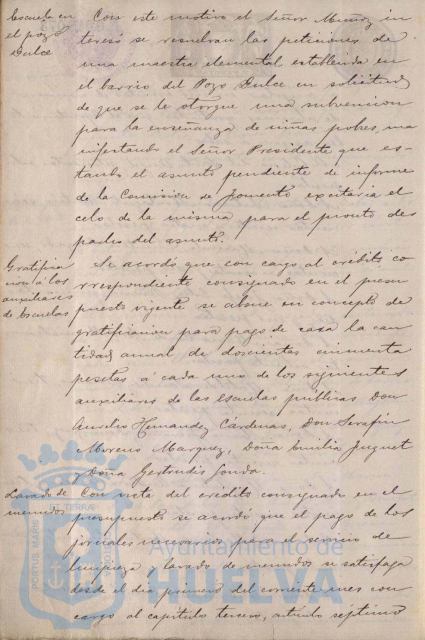 Escuela en
el pozo
Dulce
Con este motivo el Señor Muñoz in
teresó se resuelvan las peticiones de
una maestra elemental establecida en
el barrio del Pozo Dulce en solicitud
de que se le otorgue una subvencion
para la enseñanza de niñas pobres, ma
nifestando el Señor Presidente que es-
tando el asunto pendiente de informe
de la Comision de Fomento excitaria el
celo de la misma para el pronto des
pacho del asunto.
Gratifica
cion á los
auxiliares
de Escuelas
Se acordó que con cargo al crédito co
rrespondiente consignado en el presu
puesto vigente se abone en concepto de
gratificacion para pago de casa la can
tidad anual de doscientas cincuenta
pesetas á cada uno de los siguientes
auxiliares de las escuelas públicas Don
Aurelio Hernandez Cárdenas, Don Serafin
Moreno Marquez, Doña Emilia Juguet
y Doña Gertrudis
Lavado de
menudos
Con vista del crédito consignado en el
presupuesto se acordó que el pago de los
jornales necesarios para el servicio de
limpieza y lavado de menudos se satisfaga
desde el dia primero del corriente mes con
cargo al capítulo tercero, artículo septimo
PORTUS MARIS
TERRÆ
Ayuntamiento de
HUELVA